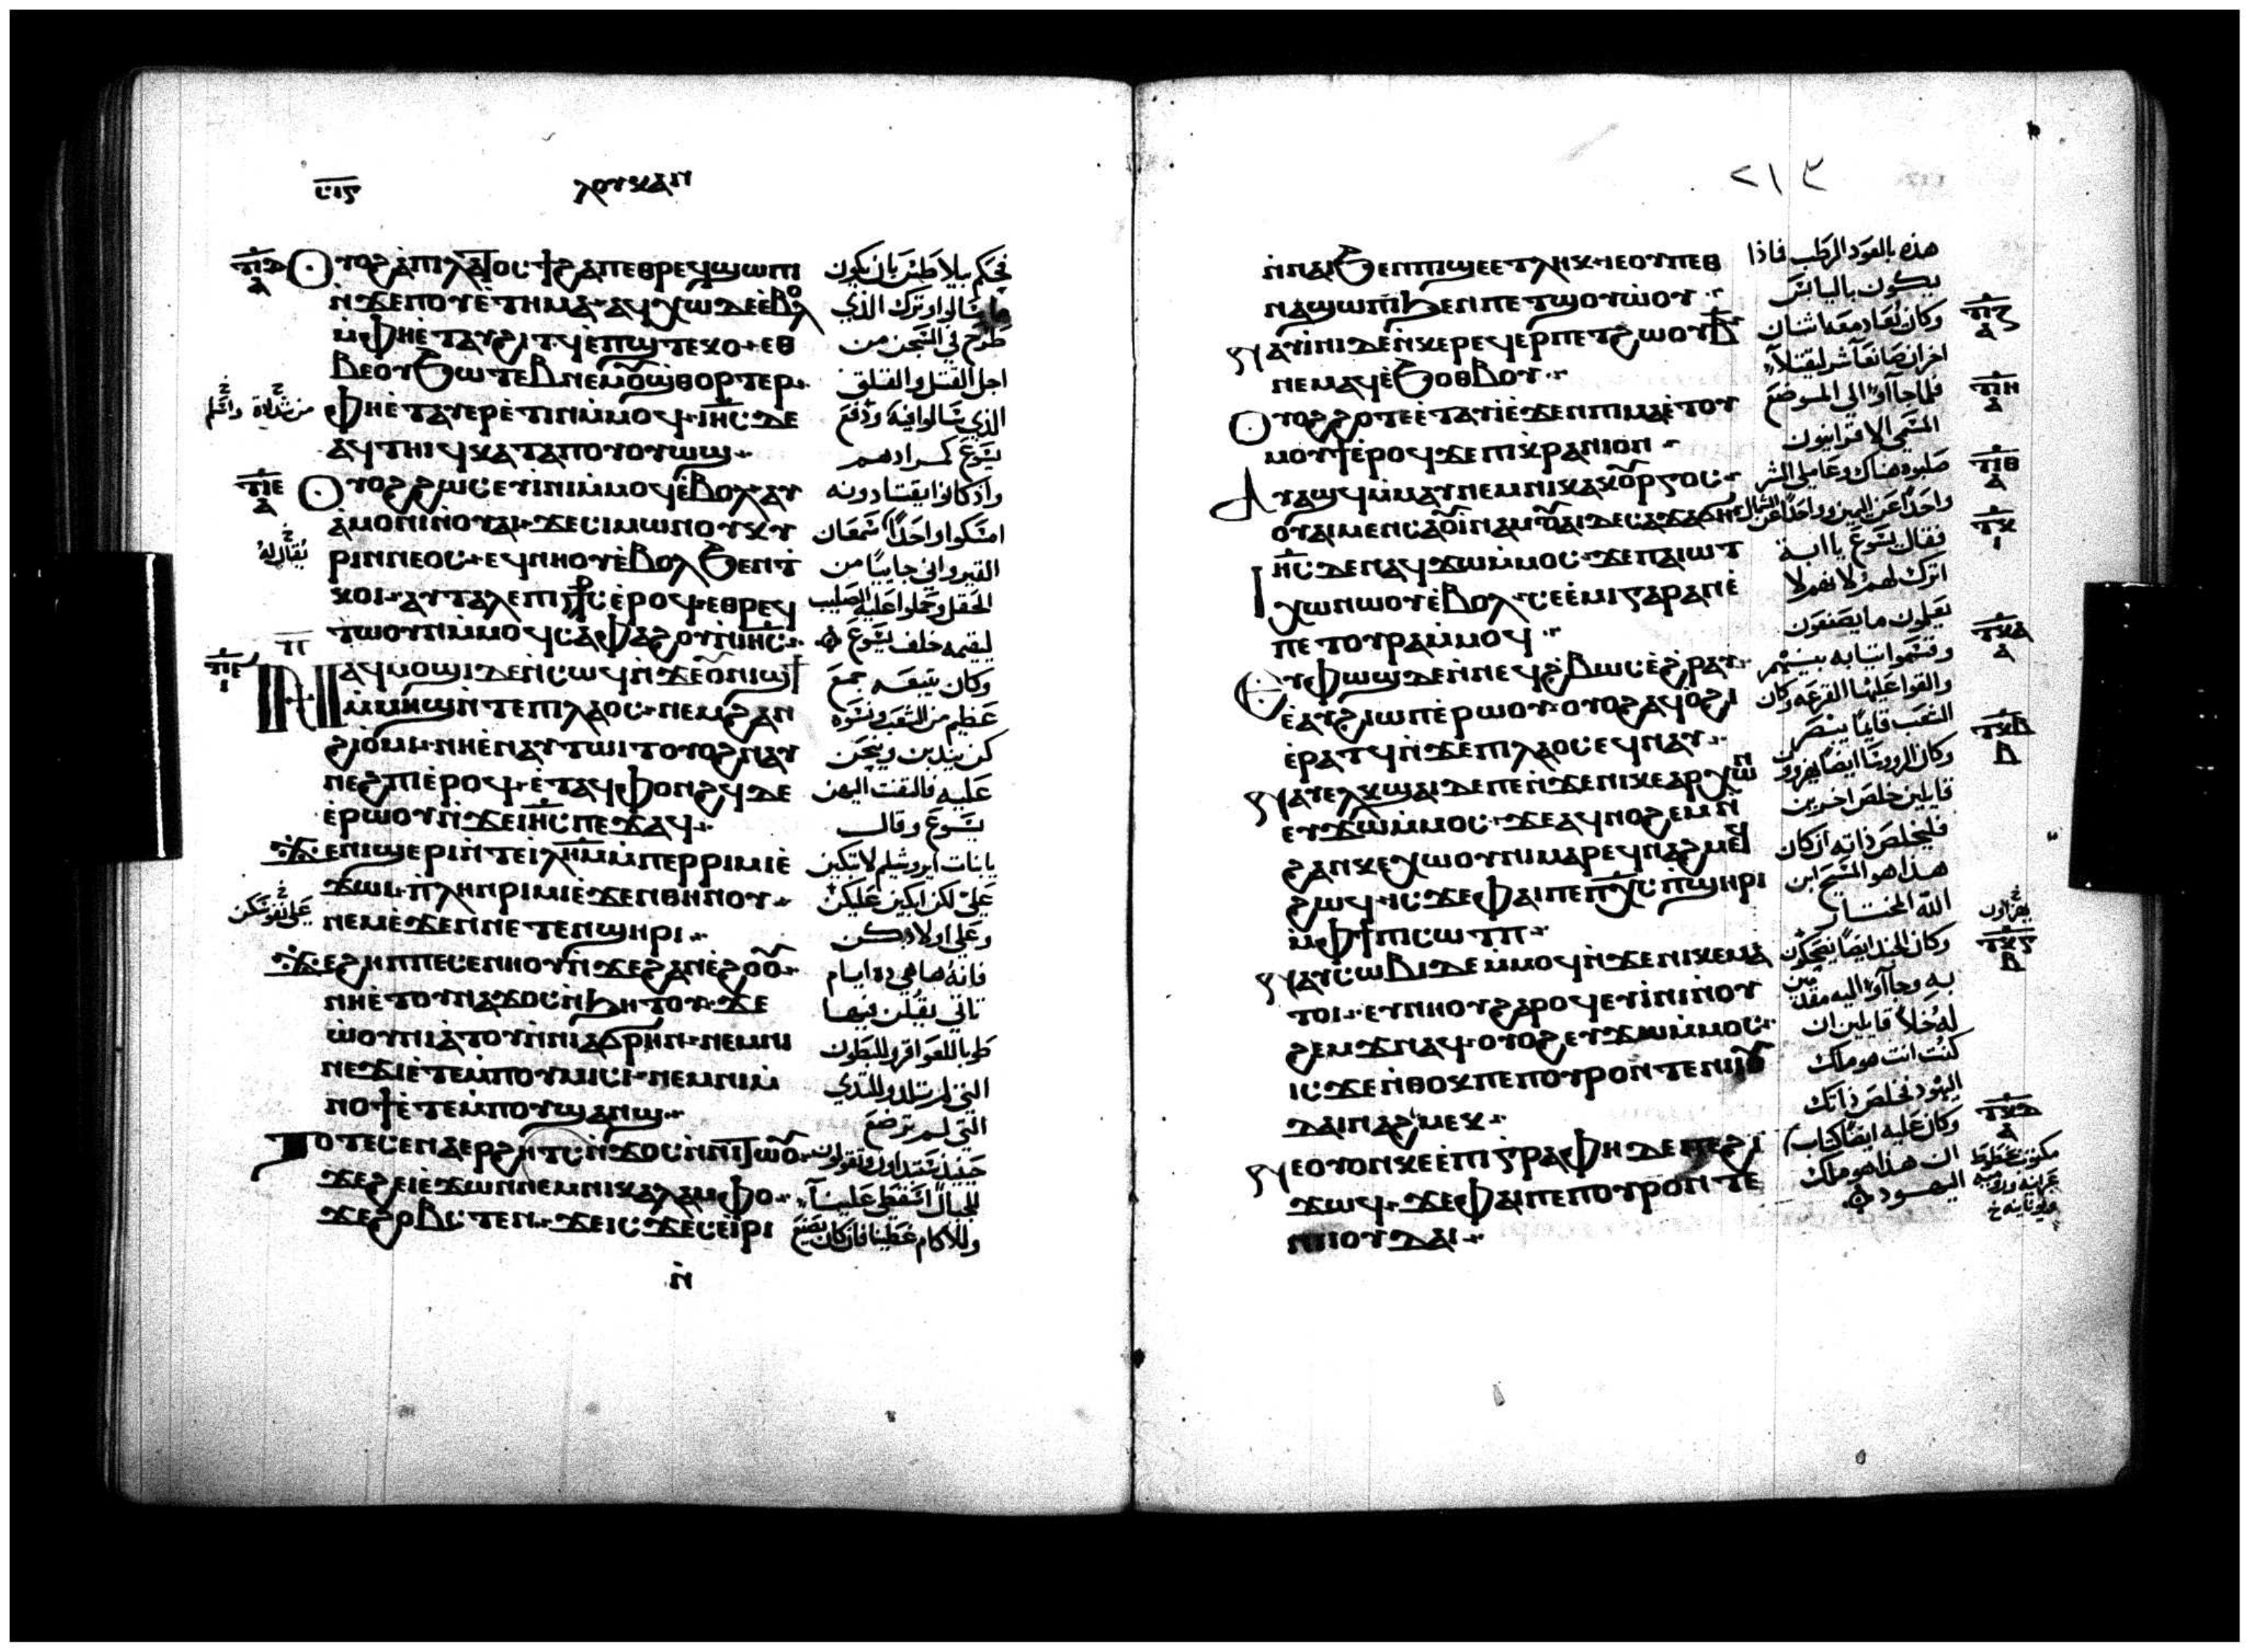 ⲥⲓⲋ ⲗⲟⲩⲕⲁⲛ
ⲟⲩⲟϩ ⲁⲡⲓⲗⲁⲧⲟⲥ ϯϩⲁⲡ ⲉⲑⲣⲉϥϣⲱⲡⲓ
ⲛ̀ϫⲉ ⲡⲟⲩⲉ̀ⲧⲏⲙⲁ· ⲁϥⲭⲱ ⲇⲉ ⲉ̀ⲃⲟⲗ
ⲙ̀ⲫⲏ ⲉ̀ⲧⲁⲩϩⲓⲧϥ ⲉ̀ⲡϣⲧⲉⲕⲟ· ⲉⲑ
ⲃⲉ ⲟⲩϧⲱⲧⲉⲃ ⲛⲉⲙ ⲟⲩϣⲑⲟⲣⲧⲉⲣ·
ⲫⲏ ⲉ̀ⲧⲁⲩⲉⲣⲉ̀ⲧⲓⲛ ⲙ̀ⲙⲟϥ· ⲓⲏⲥ ⲇⲉ
ⲁϥⲧⲏⲓϥ ⲕⲁⲧⲁ ⲡⲟⲩⲟⲩⲱϣ
ⲟⲩⲟϩ ϩⲱⲥ ⲉⲩⲓ̀ⲛⲓ ⲙ̀ⲙⲟϥ ⲉ̀ⲃⲟⲗ· ⲁⲩ
ⲁ̀ⲙⲟⲛⲓ ⲛ̀ⲟⲩⲁⲓ· ϫⲉ ⲥⲓⲙⲱⲛ ⲟⲩⲕⲩ
ⲣⲓⲛⲛⲉⲟⲥ· ⲉϥⲛⲏⲟⲩ ⲉ̀ⲃⲟⲗ ϧⲉⲛ ⲧ̀
ⲕⲟⲓ· ⲁⲩⲧⲁⲗⲉ ⲡⲓⲥ⳨ⲥ ⲉ̀ⲣⲟϥ· ⲉⲑⲣⲉϥ
ⲧⲱⲟⲩⲛ ⲙ̀ⲙⲟϥ ⲥⲁⲫⲁϩⲟⲩ ⲛ̀ⲓⲏⲥ
ⲛⲁϥⲙⲟϣⲓ ⲇⲉ ⲛ̀ⲥⲱϥ ⲛ̀ϫⲉ ⲟⲩⲛⲓϣϯ
ⲙ̀ⲙⲏϣ ⲛ̀ⲧⲉ ⲡⲓⲗⲁⲟⲥ· ⲛⲉⲙ ϩⲁⲛ
ϩⲓⲟ̀ⲙⲓ· ⲛⲏ ⲉ̀ⲛⲁⲩⲧⲱⲓⲧ ⲟⲩⲟϩ ⲛⲁⲩ
ⲛⲉϩⲡⲓ ⲉ̀ⲣⲟϥ· ⲉ̀ⲧⲁϥⲫⲟⲛϩϥ ⲇⲉ
ⲉ̀ⲣⲱⲟⲩ ⲛ̀ϫⲉ ⲓⲏⲥ ⲡⲉϫⲁϥ·
ϫⲉ ⲛⲓϣⲉⲣⲓ ⲛ̀ⲧⲉ ⲓⲗⲏⲙ ⲙ̀ⲡⲉⲣⲣⲓⲙⲓ ⲉ̀
ϫⲱⲓ· ⲡⲗⲏⲛ ⲣⲓⲙⲓ ⲉ̀ϫⲉⲛ ⲑⲏⲛⲟⲩ·
ⲛⲉⲙ ⲉ̀ϫⲉⲛ ⲛⲉⲧⲉⲛϣⲏⲣⲓ
ϫⲉ ϩⲏⲡⲡⲉ ⲥⲉⲛⲏⲟⲩ ⲛ̀ϫⲉ ϩⲁⲛⲉ̀ϩⲟⲟⲩ·
ⲛⲏ ⲉ̀ⲧⲟⲩⲛⲁϫⲟⲥ ⲛ̀ϧⲏⲧⲟⲩ· ϫⲉ
ⲱ̀ⲟⲩⲛⲓⲁ̀ⲧⲟⲩ ⲛ̀ⲛⲓⲁϭⲣⲏⲛ· ⲛⲉⲙ ⲛⲓ
ⲛⲉϫⲓ ⲉ̀ⲧⲉⲙ̀ⲡⲟⲩⲙⲓⲥⲓ· ⲛⲉⲙ ⲛⲓⲙ̀
ⲛⲟϯ ⲉ̀ⲧⲉⲙ̀ⲡⲟⲩϣⲁⲛϣ
ⲧⲟⲧⲉ ⲥⲉⲛⲁⲉⲣϩⲏⲧⲥ ⲛ̀ϫⲟⲥ ⲛ̀ⲛⲓⲧⲱⲟⲩ·
ϫⲉ ϩⲉⲓ ⲉ̀ϫⲱⲛ ⲛⲉⲙ ⲛⲓⲕⲁⲗⲁⲙⲫⲟ·
ϫⲉ ϩⲟⲃⲥⲧⲉⲛ· ϫⲉ ⲓⲥϫⲉ ⲥⲉⲓ̀ⲣⲓ
ⲛ̀
فحكم بيلاطس بان يكون
ما سالوا وترك الذي
طرح في السجن من
اجل القتل والقلق
الذي سالوا فيه ودفع
يسوع كمرادهم
واذ كانوا يقتادونه
امسكوا واحدا سمعان
القيرواني جاييا من
الحقل وحملوا عليه الصليب
ليقيمه خلف يسوع
وكان يتبعه جمع
عظيم من الشعب ونسوه
كن يندبن وينحن
عليه فالتفت اليهن
يسوع وقال
يا بنات ايروشليم لا تبكين
علي لكن ابكين عليكن
وعلي اولادكن
فانه ها هي ذه ايام
تاتي يقلن فيها
طوبا للعواقر وللبطون
التي لم تلد وللثدي
التي لم ترضع
حينيذ يبتداون ويقولون
للجبال اسقطي علينا
وللاكام غطينا فان كان يصنع
٢١٣
ⲛ̀ⲛⲁⲓ ϧⲉⲛ ⲡⲓϣⲉ ⲉⲧⲗⲏⲕ· ⲓⲉ ⲟⲩ ⲡⲉⲑ
ⲛⲁϣⲱⲡⲓ ϧⲉⲛ ⲡⲉⲧϣⲟⲩⲱ̀ⲟⲩ
ⲛⲁⲩⲓ̀ⲛⲓ ⲇⲉ ⲛ̀ⲕⲉⲣⲉϥⲉⲣⲡⲉⲧϩⲱⲟⲩ ⲃ̅
ⲛⲉⲙⲁϥ ⲉ̀ϧⲟⲑⲃⲟⲩ
ⲟⲩⲟϩ ϩⲟⲧⲉ ⲉ̀ⲧⲁⲩⲓ̀ ⲉ̀ϫⲉⲛ ⲡⲓⲙⲁ ⲉ̀ⲧⲟⲩ
ⲙⲟⲩϯ ⲉ̀ⲣⲟϥ ϫⲉ ⲡⲓⲕⲣⲁⲛⲓⲟⲛ
ⲁⲩⲁϣϥ ⲙ̀ⲙⲁⲩ ⲛⲉⲙ ⲛⲓⲕⲁⲕⲟⲩⲣⲅⲟⲥ·
ⲟⲩⲁⲓ ⲙⲉⲛ ⲥⲁⲟⲩⲓ̀ⲛⲁⲙ ⲟⲩⲁⲓ ⲇⲉ ⲥⲁϫⲁϭⲏ
ⲓⲏⲥ ⲇⲉ ⲛⲁϥϫⲱ ⲙ̀ⲙⲟⲥ· ϫⲉ ⲡⲁⲓⲱⲧ
ⲭⲱ ⲛⲱⲟⲩ ⲉ̀ⲃⲟⲗ· ⲥⲉⲉ̀ⲙⲓ ⲅⲁⲣ ⲁⲛ ⲉ̀
ⲡⲉⲧⲟⲩⲣⲁ ⲙ̀ⲙⲟϥ
ⲉⲩⲫⲱϣ ⲇⲉ ⲛ̀ⲛⲉϥϩ̀ⲃⲱⲥ ⲉ̀ϩⲣⲁⲩ·
ⲉ̀ⲁⲩϩⲓⲱⲡ ⲉ̀ⲣⲱⲟⲩ· ⲟⲩⲟϩ ⲁϥⲟ̀ϩⲓ
ⲉ̀ⲣⲁⲧϥ ⲛ̀ϫⲉ ⲡⲓⲗⲁⲟⲥ ⲉϥⲛⲁⲩ
ⲛⲁⲩⲉⲗⲕϣⲁⲓ ⲇⲉ ⲡⲉ ⲛ̀ϫⲉ ⲛⲓⲕⲉⲁⲣⲭⲱⲛ
ⲉⲩϫⲱ ⲙ̀ⲙⲟⲥ· ϫⲉ ⲁϥⲛⲟϩⲉⲙ ⲛ̀
ϩⲁⲛⲕⲉⲭⲱⲟⲩⲛⲓ ⲙⲁⲣⲉϥⲛⲁϩⲙⲉϥ
ϩⲱϥ· ⲓⲥϫⲉ ⲫⲁⲓ ⲡⲉ ⲡⲭⲥ ⲡ̀ϣⲏⲣⲓ
ⲙ̀ⲫϯ ⲡⲓⲥⲱⲧⲡ
ⲛⲁⲩⲥⲱⲃⲓ ⲇⲉ ⲙ̀ⲙⲟϥ ⲛ̀ϫⲉ ⲛⲓⲕⲉⲙⲁ
ⲧⲟⲓ· ⲉⲩⲛⲏⲟⲩ ϩⲁⲣⲟϥ ⲉⲩⲓ̀ⲛⲓ ⲛ̀ⲟⲩ
ϩⲉⲙϫ ⲛⲁϥ· ⲟⲩⲟϩ ⲉⲩϫⲱ ⲙ̀ⲙⲟⲥ·
ⲓⲥϫⲉ ⲛ̀ⲑⲟⲕ ⲡⲉ ⲡⲟⲩⲣⲟ ⲛ̀ⲧⲉ ⲛⲓⲓⲟⲩ
ⲇⲁⲓ ⲛⲁϩⲙⲉⲕ
ⲛⲉ ⲟⲩⲟⲛ ⲕⲉⲉ̀ⲡⲓⲅⲣⲁⲫⲏ ⲇⲉ ϩⲓ
ϫⲱϥ· ϫⲉ ⲫⲁⲓ ⲡⲉ ⲡⲟⲩⲣⲟ ⲛ̀ⲧⲉ
ⲛⲓⲓⲟⲩⲇⲁⲓ
هذه بالعود الرطب فاذا
يكون باليابس
وكان يقاد معه اثنان
اخران صانعا شر ليقتلا
فلما جاآوا الي الموضع
المسمي الاقرانيون
صلبوه هناك وعاملي الشر
واحدا عن اليمين وواحدا عن الشمال
فقال يسوع يا ابة
اترك لهم لانهم لا
يعلمون ما يصنعون
وقسموا ثيابه بينهم
والقوا عليها القرعه وكان
الشعب قايما يبصر
وكان الروسا ايضا يهزوون
قايلين خلص اخرين
فليخلص ذاته ان كان
هذا هو المسيح ابن
الله المختار
وكان الجند ايضا يضحكون
به وجاآوا اليه مقدمين
له خلا قايلين ان
كنت انت هو ملك
اليهود فخلص ذاتك
وكان عليه ايضا كتاب
ان هذا هو ملك
اليهود